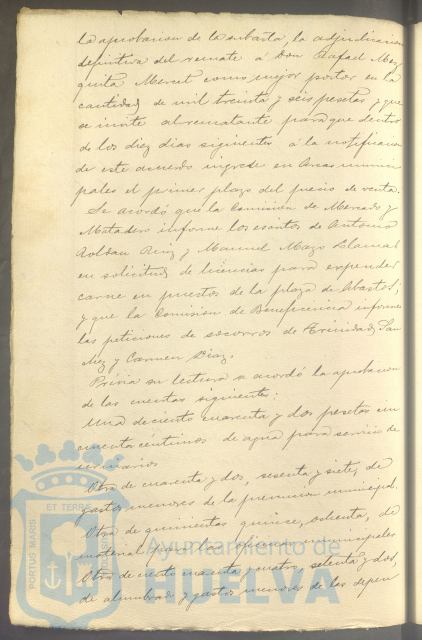 la aprobacion de la subasta, la adjudicacion
definitiva del remate á Don Rafael Mez
quita Moret como mejor postor en la
cantidad de mil treinta y seis pesetas y que
se invite al rematante para que dentro
de los diez dias siguientes á la notificacion
de este acuerdo ingrese en Arcas munici
pales el primer plazo del precio de venta.
Se acordó que la Comision de Mercado y
Matadero informe los escritos de Antonio
Roldan Ruiz y Manuel Mazo Llamas
en solicitud de licencias para expender
carne en puestos de la plaza de Abastos;
y que la Comision de Beneficencia informe
las peticiones de socorros de Trinidad San
y Carmen Diaz.
Prévia su lectura se acordó la aprobacion
de las cuentas siguientes:
Una de ciento cuarenta y dos pesetas cin
cuenta centimos de agua para servicio de
urinarios
Otra de cuarenta y dos, sesenta y siete, de
gastos menores de la municipal.
Otra de quinientas quince, ochenta, de
material para las oficinas municipales
Otra de ciento cuarenta y cuatro, setenta y dos,
de alumbrado y gastos menores de las depen
PORTUS MARIS
ET TERRE
Ayuntamiento de
HUELVA